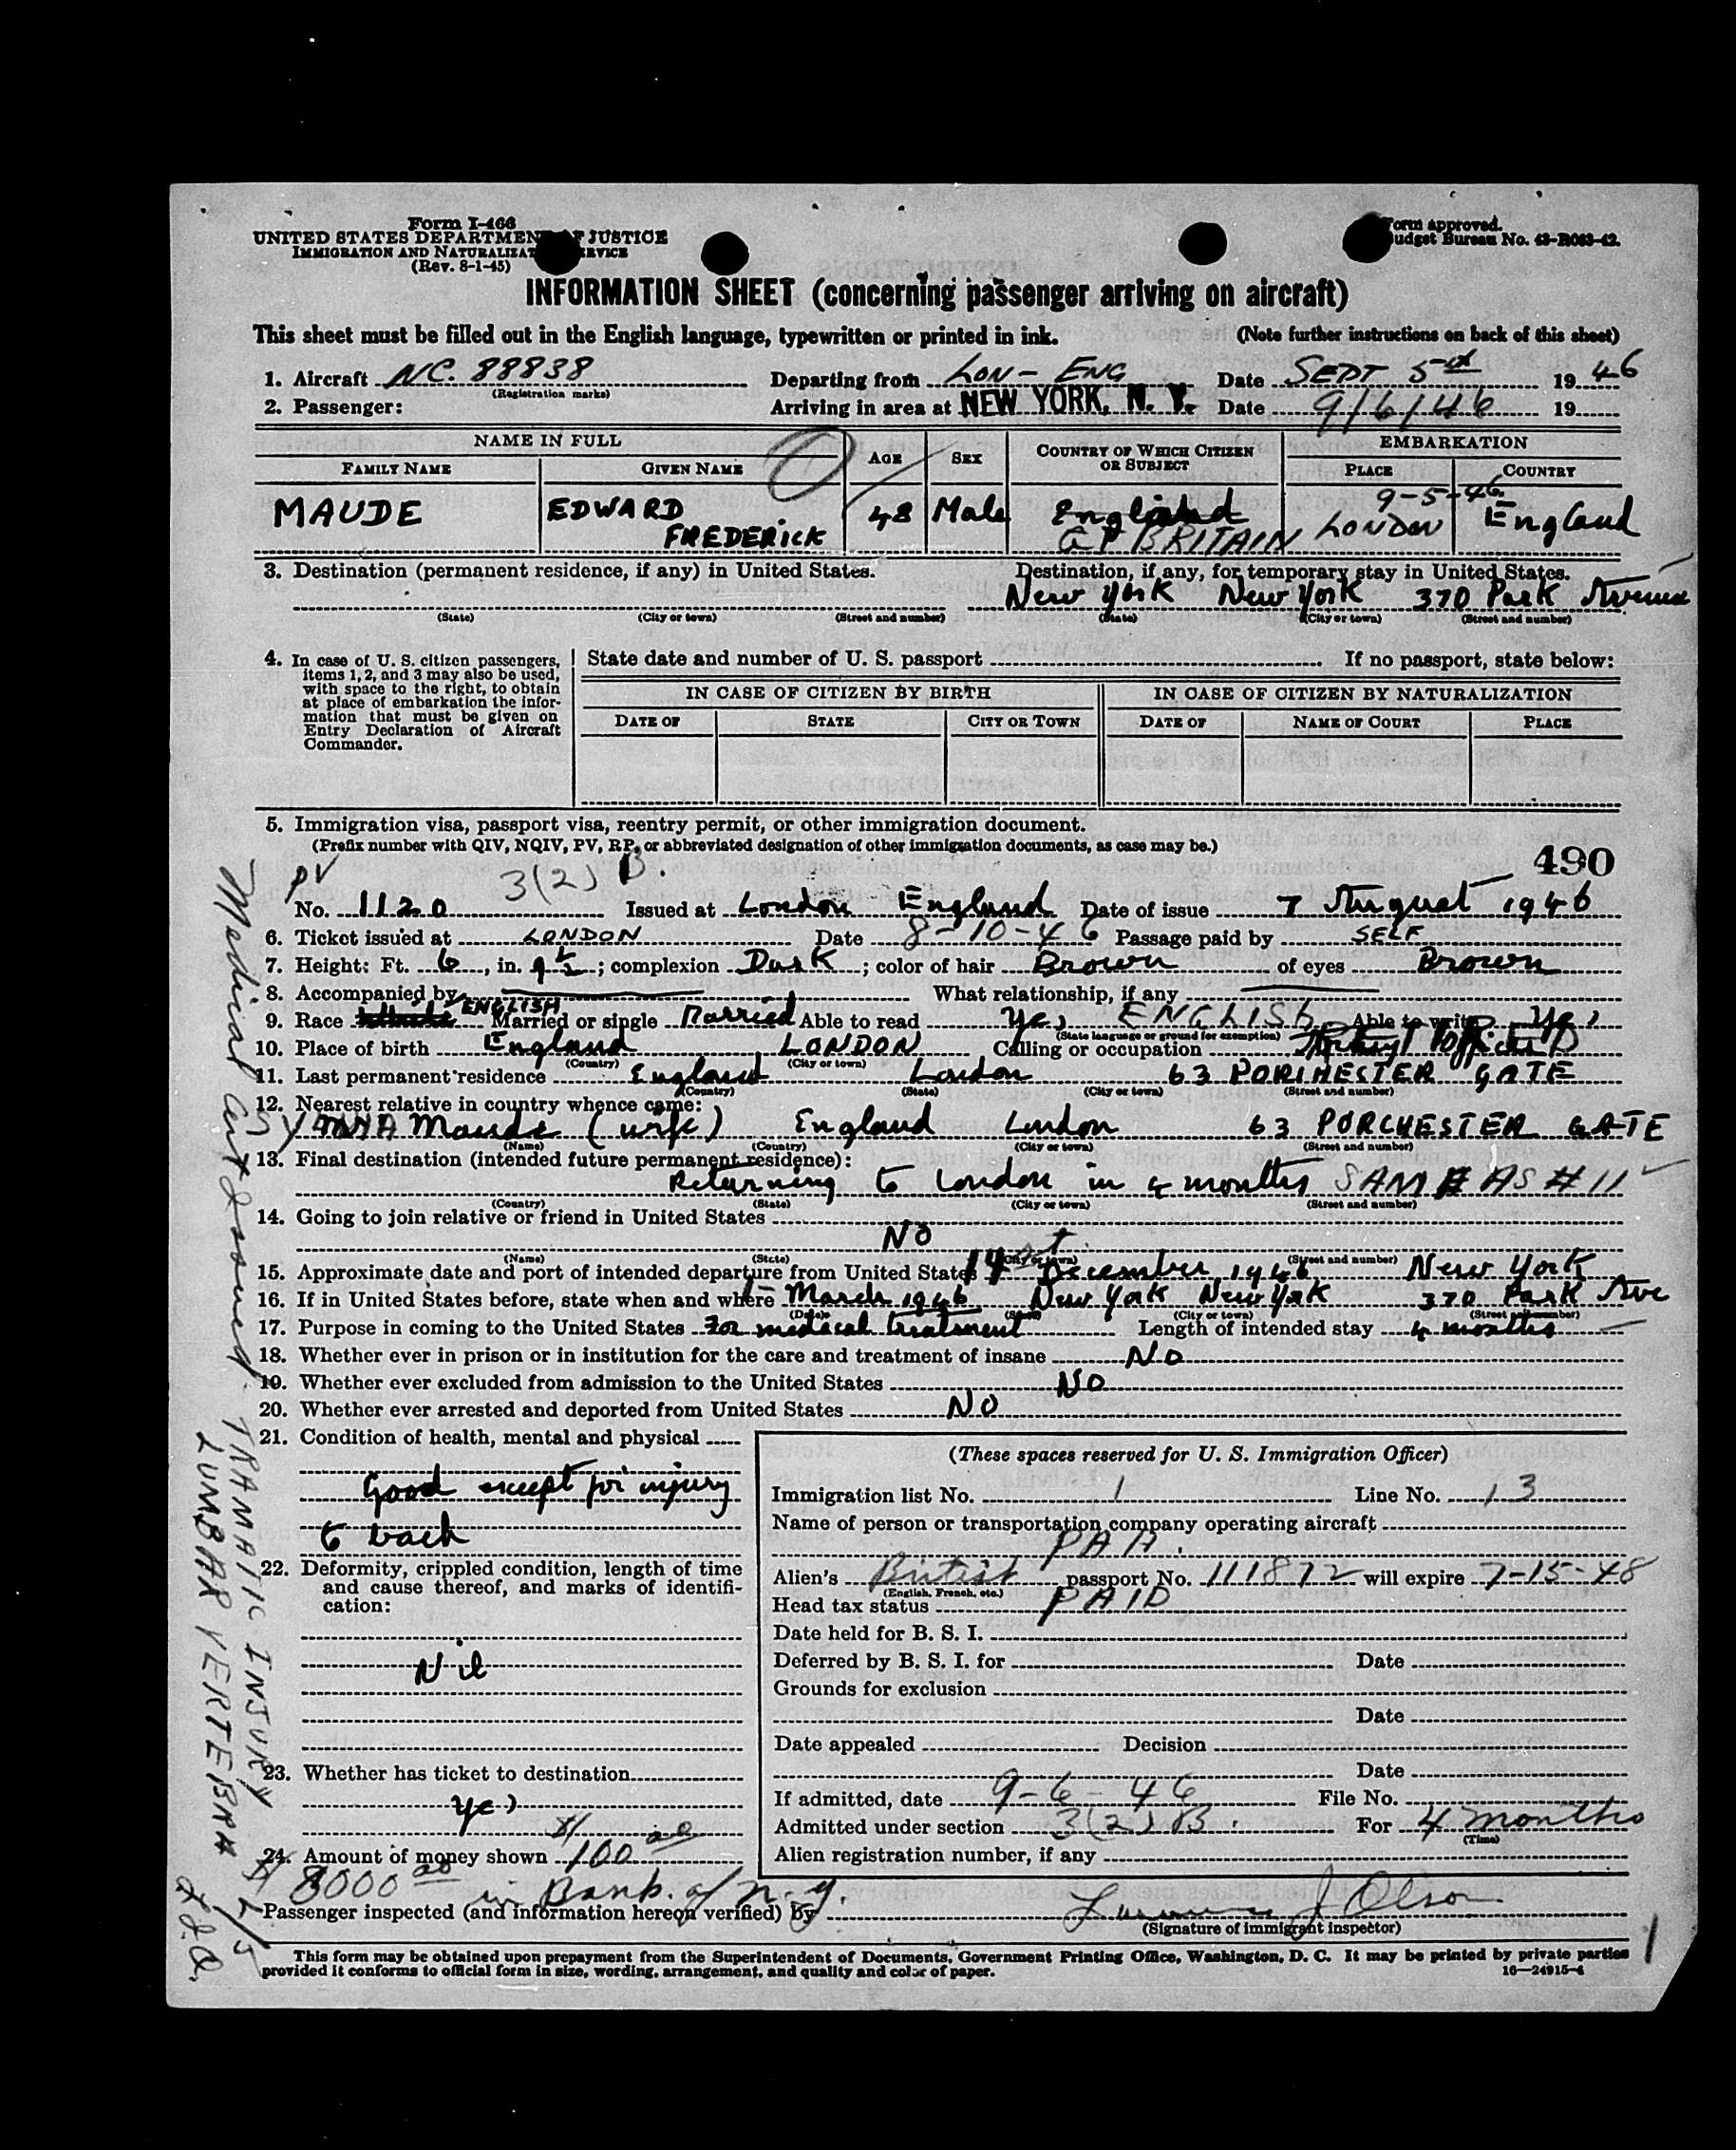 Form I-466
UNITED STATES DEPARTMENT OF JUSTICE
IMMIGRATION AND NATURALIZATION SERVICE
(Rev. 8-1-45)
Form approved.
Budget Bureau No. 43-R063-42.
INFORMATION SHEET (concerning passenger arriving on aircraft)
This sheet must be filled out in the English language, typewritten or printed in ink. (Note further instructions on back of this sheet)
1. Aircraft NC. 88838 Departing from LON - ENG Date SEPT 5th 1946
(Registration marks)
2. Passenger: Arriving in area at NEW YORK, N. Y. Date 9/6/46 19
NAME IN FULL AGE SEX COUNTRY OF WHICH CITIZEN OR SUBJECT EMBARKATION
FAMILY NAME GIVEN NAME PLACE COUNTRY
9-5-46
MAUDE EDWARD FREDERICK 48 Male England GT BRITAIN LONDON England
3. Destination (permanent residence, if any) in United States. Destination, if any, for temporary stay in United States.
New York New York 370 Park Avenue
(State) (City or town) (Street and number) (State) (City or town) (Street and number)
4. In case of U. S. citizen passengers, items 1, 2, and 3 may also be used, with space to the right, to obtain at place of embarkation the information that must be given on Entry Declaration of Aircraft Commander.
State date and number of U. S. passport If no passport, state below:
IN CASE OF CITIZEN BY BIRTH IN CASE OF CITIZEN BY NATURALIZATION
DATE OF STATE CITY OR TOWN DATE OF NAME OF COURT PLACE
5. Immigration visa, passport visa, reentry permit, or other immigration document.
(Prefix number with QIV, NQIV, PV, RP, or abbreviated designation of other immigration documents, as case may be.)
490
PV 3(2) B.
No. 1120 Issued at London England Date of issue 7 August 1946
6. Ticket issued at LONDON Date 8-10-46 Passage paid by SELF
7. Height: Ft. 6, in. ; complexion Dark; color of hair Brown of eyes Brown
8. Accompanied by What relationship, if any
9. Race ENGLISH Married or single Married Able to read Yes ENGLISH Able to write Yes
(State language or ground for exemption)
10. Place of birth England LONDON Calling or occupation
(Country) (City or town)
11. Last permanent residence England London 63 PORCHESTER GATE
(Country) (State) (City or town) (Street and number)
12. Nearest relative in country whence came:
Maude (wife) England London 63 PORCHESTER GATE
(Name) (Country) (City or town) (Street and number)
13. Final destination (intended future permanent residence):
Returning to London in 4 months SAME AS # 11
(Country) (State) (City or town) (Street and number)
14. Going to join relative or friend in United States
NO
(Name) (State) (City or town) (Street and number)
15. Approximate date and port of intended departure from United States December 1946 New York
16. If in United States before, state when and where March 1946 New York New York 370 Park Ave
(Date) (State) (City or town) (Street and number)
17. Purpose in coming to the United States For medical treatment Length of intended stay 4 months
18. Whether ever in prison or in institution for the care and treatment of insane No
19. Whether ever excluded from admission to the United States NO
20. Whether ever arrested and deported from United States NO
21. Condition of health, mental and physical
Good except for injury
to back
22. Deformity, crippled condition, length of time and cause thereof, and marks of identification:
Nil
23. Whether has ticket to destination
Yes
24. Amount of money shown $100 00
$8000 00 in Bank of N.Y.
(These spaces reserved for U. S. Immigration Officer)
Immigration list No. 1 Line No. 13
Name of person or transportation company operating aircraft
PAA.
Alien's British passport No. 111872 will expire 7-15-48
(English, French, etc.)
Head tax status PAID
Date held for B. S. I.
Deferred by B. S. I. for Date
Grounds for exclusion
Date
Date appealed Decision
Date
If admitted, date 9-6-46 File No.
Admitted under section 3(2) B. For 4 months
(Time)
Alien registration number, if any
Passenger inspected (and information hereon verified) by J Olson
(Signature of immigrant inspector)
This form may be obtained upon prepayment from the Superintendent of Documents, Government Printing Office, Washington, D. C. It may be printed by private parties
provided it conforms to official form in size, wording, arrangement, and quality and color of paper. 16—24915-4
1
Medical Cert Issued. TRAMATIC INJURY
LUMBAR VERTEBRA